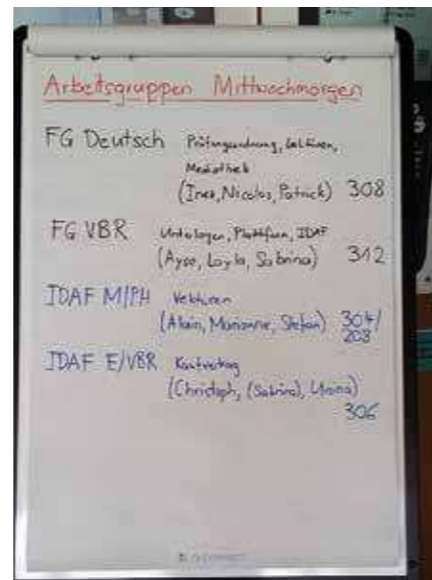 Arbeitsgruppen Mittwochmorgen
FG Deutsch Prüfungsordnung, Lektüren,
Mediothek
(Ines, Nicolas, Patrick) 308
FG VBR Unterlagen, Plattform, IDAF
(Ayse, Layla, Sabrina) 312
IDAF M/PH Vektoren
(Alain, Marianne, Stefan) 304/
208
IDAF E/VBR Kaufvertrag
(Christoph, (Sabrina),
306